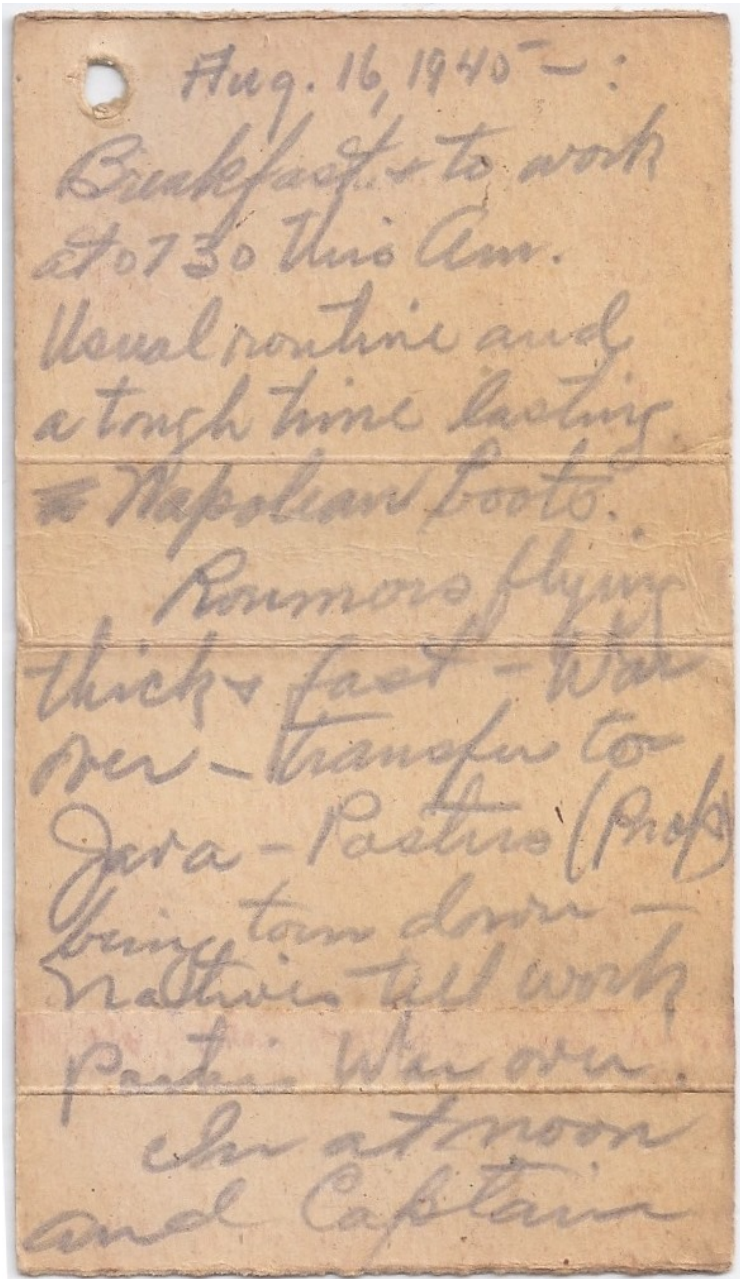 Aug. 16, 1945 — :
Breakfast & to work
at 0730 this Am.
Usual routine and
a tough time lasting
Napolean boots.
Roumors flying
thick & fast — War
over — transfer to
Java — Posters (Prop)
being torn down —
Natives tell work
Parties War over.
In at noon
and Captain